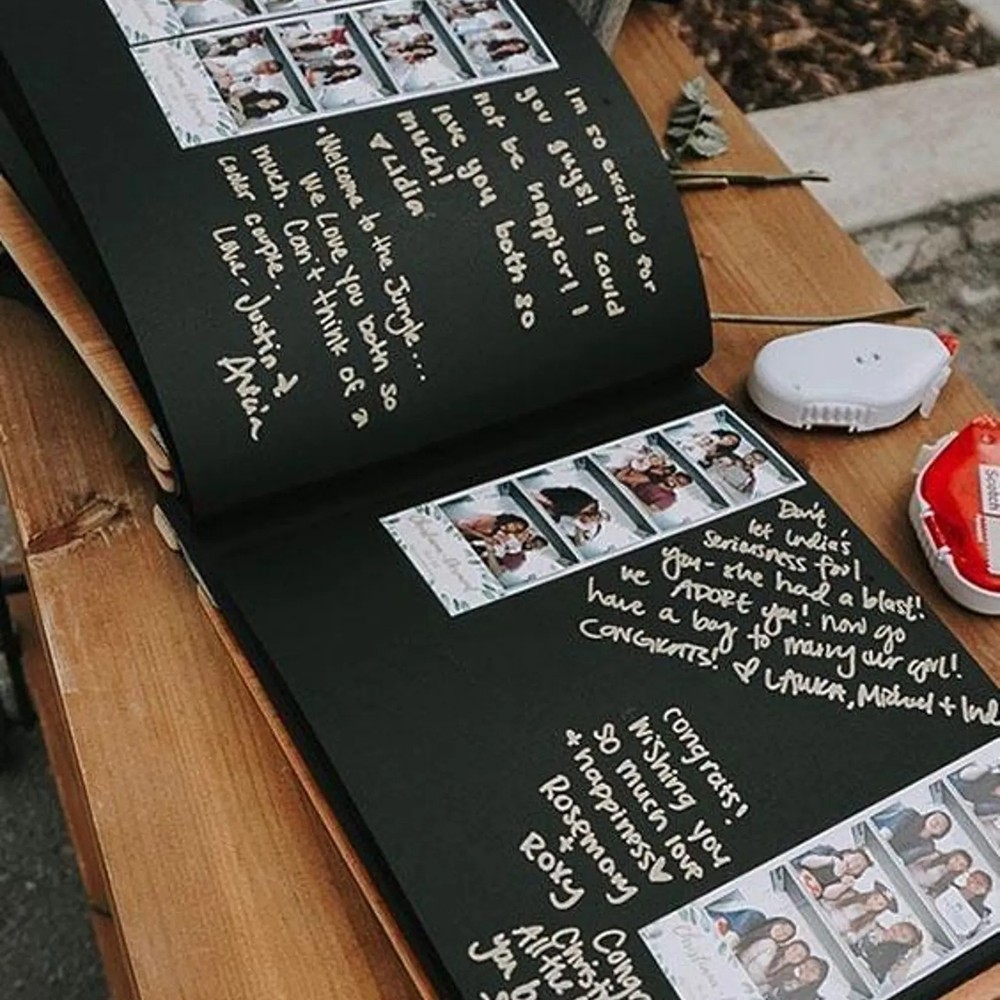 Im so excited for
you guys! I could
not be happier! I
love you both so
much!
Lidia
Welcome to the Jungle....
We love you both so
much. Can't think of a
cooler couple.
Love, Justin &
Don't
let India's
seriousness fool
you- she had a blast!
we ADORE you! now go
have a boy to marry our girl!
CONGRATS! ♡ LAURA, Michael + Ind
Congrats!
Wishing you
so much love
+ happiness♥
Rosemary
+
Roxy
Cong
Christ
All the
you b
Scotch